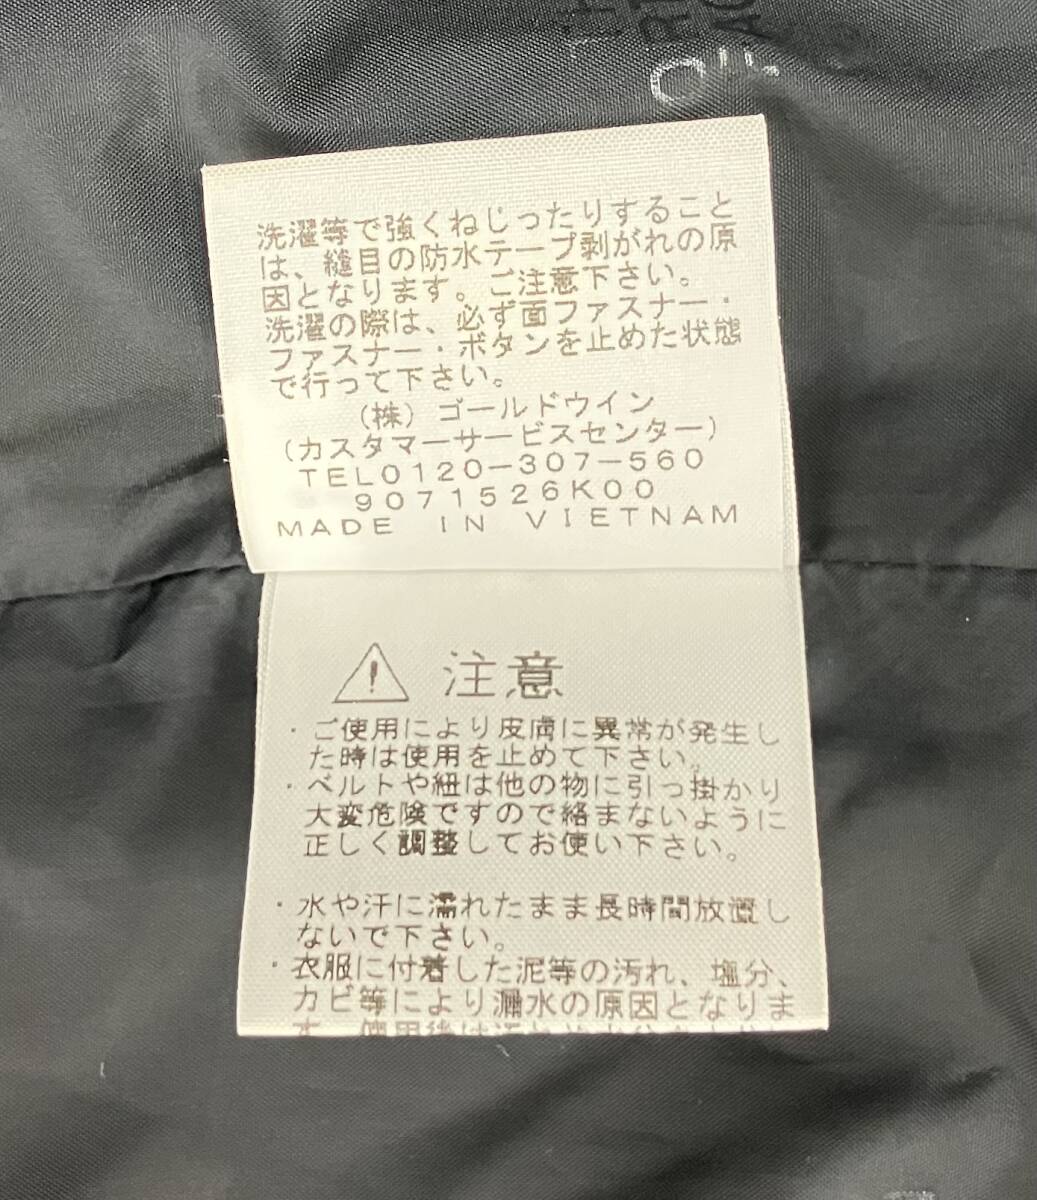 洗濯等で強くねじったりすること
は、縫目の防水テープ剥がれの原
因となります。ご注意下さい。
洗濯の際は、必ず面ファスナー・
ファスナー・ボタンを止めた状態
で行って下さい。
(株) ゴールドウイン
(カスタマーサービスセンター)
TEL0120-307-560
9071526K00
MADE IN VIETNAM
注意
・ご使用により皮膚に異常が発生し
た時は使用を止めて下さい。
・ベルトや紐は他の物に引っ掛かり
大変危険ですので絡まないように
正しく調整してお使い下さい。
・水や汗に濡れたまま長時間放置し
ないで下さい。
・衣服に付着した泥等の汚れ、塩分、
カビ等により漏水の原因となりま
す。使用後は汚れや水分を